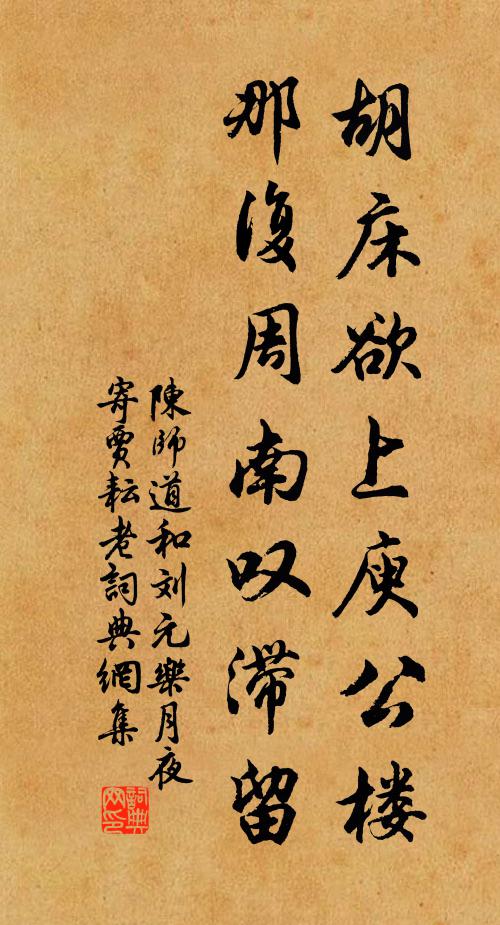 胡床欲上庾公楼
那復周南叹滞留
陳師道和刘元樂月夜
寄賈耘老詞典網集
詞典网印